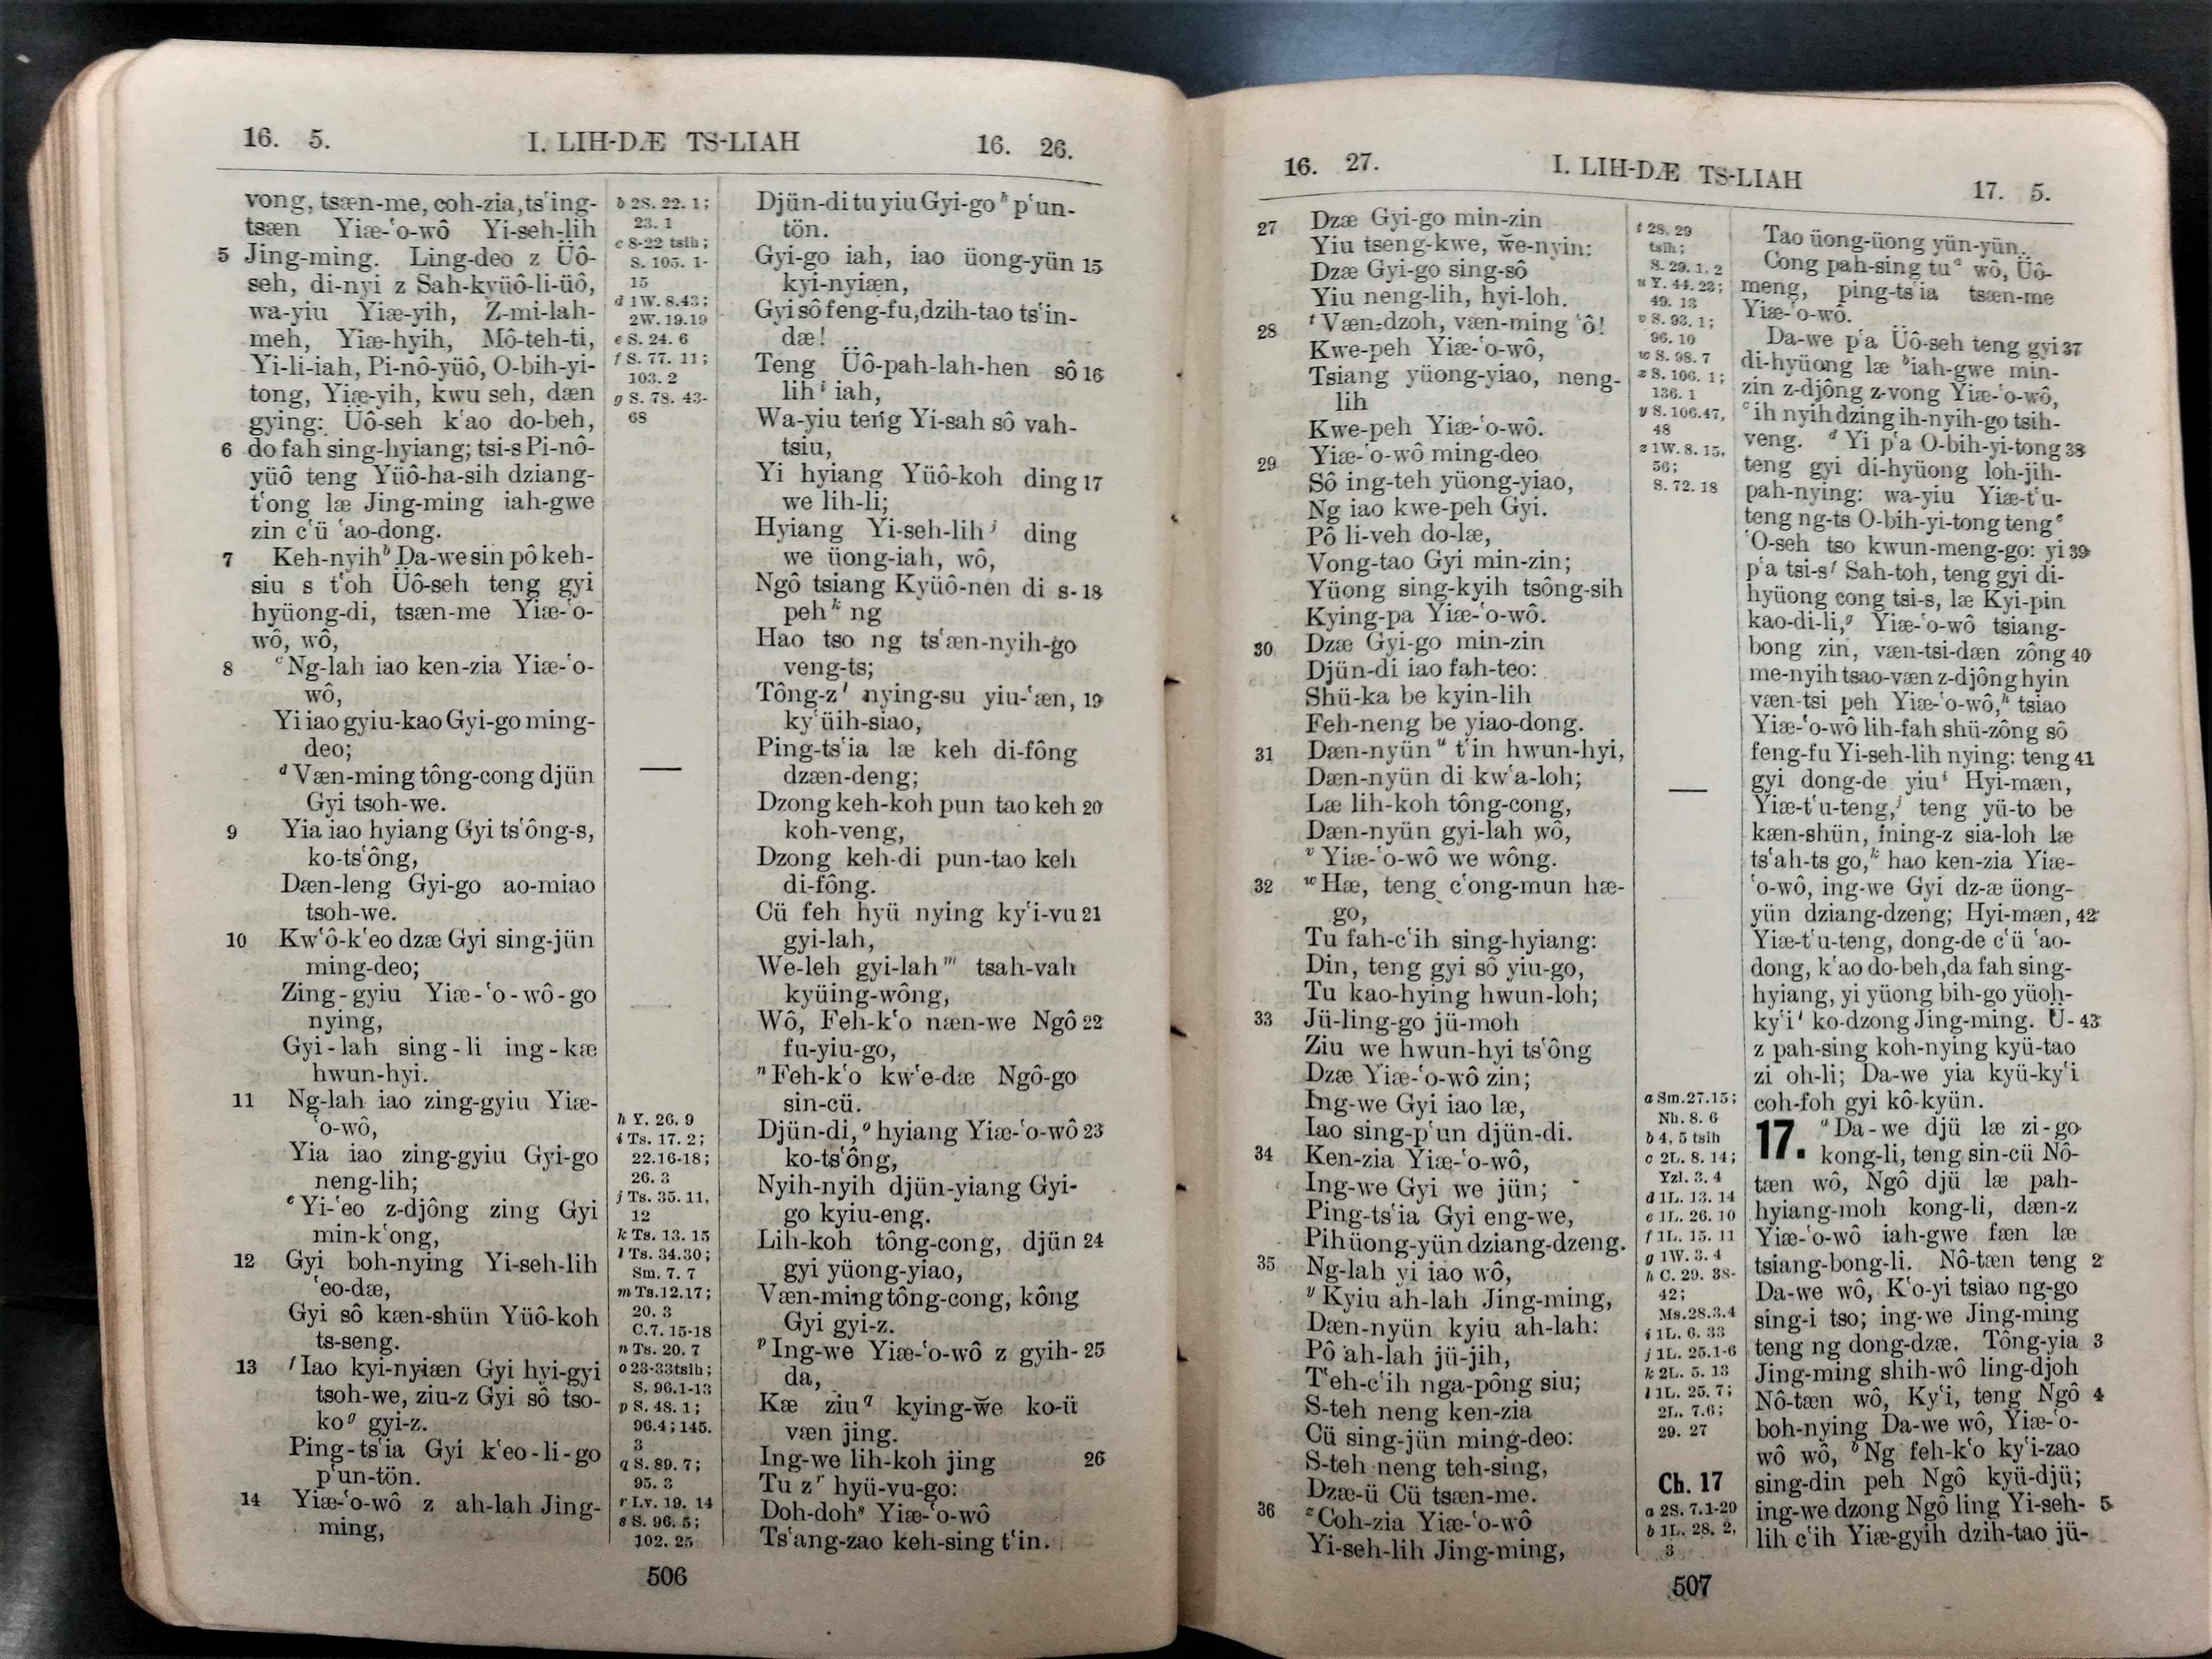 16. 5. I. LIH-DÆ TS-LIAH 16. 26.
vong, tsæn-me, coh-zia, ts‘ing-
tsæn Yiæ-‘o-wô Yi-seh-lih
5 Jing-ming. Ling-deo z Üô-
seh, di-nyi z Sah-kyüô-li-üô,
wa-yiu Yiæ-yih, Z-mi-lah-
meh, Yiæ-hyih, Mô-teh-ti,
Yi-li-iah, Pi-nô-yüô, O-bih-yi-
tong, Yiæ-yih, kwu seh, dæn
gying: Üô-seh k‘ao do-beh,
6 do fah sing-hyiang; tsi-s Pi-nô-
yüô teng Yüô-ha-sih dziang-
t‘ong læ Jing-ming iah-gwe
zin c‘ü ‘ao-dong.
7 Keh-nyih b Da-we sin pô keh-
siu s t‘oh Üô-seh teng gyi
hyüong-di, tsæn-me Yiæ-‘o-
wô, wô,
8 c Ng-lah iao ken-zia Yiæ-‘o-
wô,
Yi iao gyiu-kao Gyi-go ming-
deo;
d Væn-ming tông-cong djün
Gyi tsoh-we.
9 Yia iao hyiang Gyi ts‘ông-s,
ko-ts‘ông,
Dæn-leng Gyi-go ao-miao
tsoh-we.
10 Kw‘ô-k‘eo dzæ Gyi sing-jün
ming-deo;
Zing-gyiu Yiæ-‘o-wô-go
nying,
Gyi-lah sing-li ing-kæ
hwun-hyi.
11 Ng-lah iao zing-gyiu Yiæ-
‘o-wô,
Yia iao zing-gyiu Gyi-go
neng-lih;
e Yi-‘eo z-djông zing Gyi
min-k‘ong,
12 Gyi boh-nying Yi-seh-lih
‘eo-dæ,
Gyi sô kæn-shün Yüô-koh
ts-seng.
13 f Iao kyi-nyiæn Gyi hyi-gyi
tsoh-we, ziu-z Gyi sô tso-
ko g gyi-z.
Ping-ts‘ia Gyi k‘eo-li-go
p‘un-tön.
14 Yiæ-‘o-wô z ah-lah Jing-
ming,
b 2S. 22. 1;
23. 1
c 8-22 tsih;
S. 105. 1-
15
d 1W. 8.43;
2W. 19.19
e S. 24. 6
f S. 77. 11;
103. 2
g S. 78. 43-
68
h Y. 26. 9
i Ts. 17. 2;
22.16-18;
26. 3
j Ts. 35. 11,
12
k Ts. 13. 15
l Ts. 34.30;
Sm. 7. 7
m Ts.12.17;
20. 3
C.7. 15-18
n Ts. 20. 7
o 23-33tsih;
S. 96.1-13
p S. 48. 1;
96.4; 145.
3
q S. 89. 7;
95. 3
r Lv. 19. 14
s S. 96. 5;
102. 25
Djün-di tu yiu Gyi-go h p‘un-
tön.
Gyi-go iah, iao üong-yün 15
kyi-nyiæn,
Gyi sô feng-fu, dzih-tao ts‘in-
dæ!
Teng Üô-pah-lah-hen sô 16
lih i iah,
Wa-yiu teng Yi-sah sô vah-
tsiu,
Yi hyiang Yüô-koh ding 17
we lih-li;
Hyiang Yi-seh-lih j ding
we üong-iah, wô,
Ngô tsiang Kyüô-nen di s- 18
peh k ng
Hao tso ng ts‘æn-nyih-go
veng-ts;
Tông-z l nying-su yiu-‘æn, 19
ky‘üih-siao,
Ping-ts‘ia læ keh di-fông
dzæn-deng;
Dzong keh-koh pun tao keh 20
koh-veng,
Dzong keh-di pun-tao keh
di-fông.
Cü feh hyü nying ky‘i-vu 21
gyi-lah,
We-leh gyi-lah m tsah-vah
kyüing-wông,
Wô, Feh-k‘o næn-we Ngô 22
fu-yiu-go,
n Feh-k‘o kw‘e-dæ Ngô-go
sin-cü.
Djün-di, o hyiang Yiæ-‘o-wô 23
ko-ts‘ông,
Nyih-nyih djün-yiang Gyi-
go kyiu-eng.
Lih-koh tông-cong, djün 24
gyi yüong-yiao,
Væn-ming tông-cong, kông
Gyi gyi-z.
p Ing-we Yiæ-‘o-wô z gyih- 25
da,
Kæ ziu q kying-w̆e ko-ü
væn jing.
Ing-we lih-koh jing 26
Tu z r hyü-vu-go:
Doh-doh s Yiæ-‘o-wô
Ts‘ang-zao keh-sing t‘in.
506
16. 27. I. LIH-DÆ TS-LIAH 17. 5.
27 Dzæ Gyi-go min-zin
Yiu tseng-kwe, w̆e-nyin:
Dzæ Gyi-go sing-sô
Yiu neng-lih, hyi-loh.
28 t Væn-dzoh, væn-ming ‘ô!
Kwe-peh Yiæ-‘o-wô,
Tsiang yüong-yiao, neng-
lih
Kwe-peh Yiæ-‘o-wô.
29 Yiæ-‘o-wô ming-deo
Sô ing-teh yüong-yiao,
Ng iao kwe-peh Gyi.
Pô li-veh do-læ,
Vong-tao Gyi min-zin;
Yüong sing-kyih tsông-sih
Kying-pa Yiæ-‘o-wô.
30 Dzæ Gyi-go min-zin
Djün-di iao fah-teo:
Shü-ka be kyin-lih
Feh-neng be yiao-dong.
31 Dæn-nyün u t‘in hwun-hyi,
Dæn-nyün di kw‘a-loh;
Læ lih-koh tông-cong,
Dæn-nyün gyi-lah wô,
v Yiæ-‘o-wô we wông.
32 w Hæ, teng c‘ong-mun hæ-
go,
Tu fah-c‘ih sing-hyiang:
Din, teng gyi sô yiu-go,
Tu kao-hying hwun-loh;
33 Jü-ling-go jü-moh
Ziu we hwun-hyi ts‘ông
Dzæ Yiæ-‘o-wô zin;
Ing-we Gyi iao læ,
Iao sing-p‘un djün-di.
34 Ken-zia Yiæ-‘o-wô,
Ing-we Gyi we jün;
Ping-ts‘ia Gyi eng-we,
Pih üong-yün dziang-dzeng.
35 Ng-lah yi iao wô,
y Kyiu ah-lah Jing-ming,
Dæn-nyün kyiu ah-lah:
Pô ah-lah jü-jih,
T‘eh-c‘ih nga-pông siu;
S-teh neng ken-zia
Cü sing-jün ming-deo:
S-teh neng teh-sing,
Dzæ-ü Cü tsæn-me.
36 z Coh-zia Yiæ-‘o-wô
Yi-seh-lih Jing-ming,
t 2S. 29
tsih;
S. 29. 1, 2
u Y. 44. 23;
49. 13
v S. 93. 1;
96. 10
w S. 98. 7
x S. 106. 1;
136. 1
y S. 106.47,
48
z 1W. 8. 15,
56;
S. 72. 18
a Sm.27.15;
Nh. 8. 6
b 4, 5 tsih
c 2L. 8. 14;
Yzl. 3. 4
d 1L. 13. 14
e 1L. 26. 10
f 1L. 15. 11
g 1W. 3. 4
h C. 29. 38-
42;
Ms.28.3.4
i 1L. 6. 33
j 1L. 25.1-6
k 2L. 5. 13
l 1L. 25. 7;
2L. 7.6;
29. 27
Ch. 17
a 2S. 7.1-29
b 1L. 28. 2,
3
Tao üong-üong yün-yün.
Cong pah-sing tu a wô, Üô-
meng, ping-ts‘ia tsæn-me
Yiæ-‘o-wô.
Da-we p‘a Üô-seh teng gyi 37
di-hyüong læ b iah-gwe min-
zin z-djông z-vong Yiæ-‘o-wô,
c ih nyih dzing ih-nyih-go tsih-
veng. d Yi p‘a O-bih-yi-tong 38
teng gyi di-hyüong loh-jih-
pah-nying: wa-yiu Yiæ-t‘u-
teng ng-ts O-bih-yi-tong teng e
‘O-seh tso kwun-meng-go: yi 39
p‘a tsi-s f Sah-toh, teng gyi di-
hyüong cong tsi-s, læ Kyi-pin
kao-di-li, g Yiæ-‘o-wô tsiang-
bong zin, væn-tsi-dæn zông 40
me-nyih tsao-væn z-djông hyin
væn-tsi peh Yiæ-‘o-wô, h tsiao
Yiæ-‘o-wô lih-fah shü-zông sô
feng-fu Yi-seh-lih nying: teng 41
gyi dong-de yiu i Hyi-mæn,
Yiæ-t‘u-teng, j teng yü-to be
kæn-shün, ming-z sia-loh læ
ts‘ah-ts go, k hao ken-zia Yiæ-
‘o-wô, ing-we Gyi dz-æ üong-
yün dziang-dzeng; Hyi-mæn, 42
Yiæ-t‘u-teng, dong-de c‘ü ‘ao-
dong, k‘ao do-beh, da fah sing-
hyiang, yi yüong bih-go yüoh-
ky‘i l ko-dzong Jing-ming. Ü- 43
z pah-sing koh-nying kyü-tao
zi oh-li; Da-we yia kyü-ky‘i
coh-foh gyi kô-kyün.
17. a Da-we djü læ zi-go
kong-li, teng sin-cü Nô-
tæn wô, Ngô djü læ pah-
hyiang-moh kong-li, dæn-z
Yiæ-‘o-wô iah-gwe fæn læ
tsiang-bong-li. Nô-tæn teng 2
Da-we wô, K‘o-yi tsiao ng-go
sing-i tso; ing-we Jing-ming
teng ng dong-dzæ. Tông-yia 3
Jing-ming shih-wô ling-djoh
Nô-tæn wô, Ky‘i, teng Ngô 4
boh-nying Da-we wô, Yiæ-‘o-
wô wô, b Ng feh-k‘o ky‘i-zao
sing-din peh Ngô kyü-djü;
ing-we dzong Ngô ling Yi-seh- 5
lih c‘ih Yiæ-gyih dzih-tao jü-
507